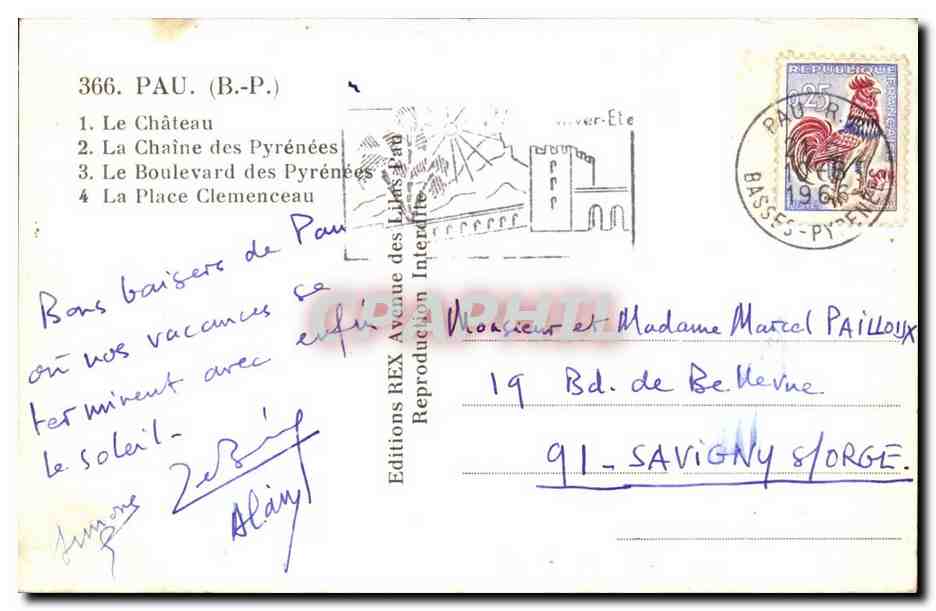 366. PAU. (B.-P.)
1. Le Château
2. La Chaîne des Pyrénées
3. Le Boulevard des Pyrénées
4 La Place Clemenceau
Bons baisers de Pau
où nos vacances se
terminent avec enfin
le soleil-
Simone
Alain
Editions REX Avenue des Lilas Pau
Reproduction Interdite
iver-Eté
REPUBLIQUE FRANÇAISE
0,25
PAU R.
1966
BASSES-PYRENEES
CPAPHIL
Monsieur et Madame Marcel PAILLOUX
19 Bd. de Bellevue
91- SAVIGNY S/ORGE.